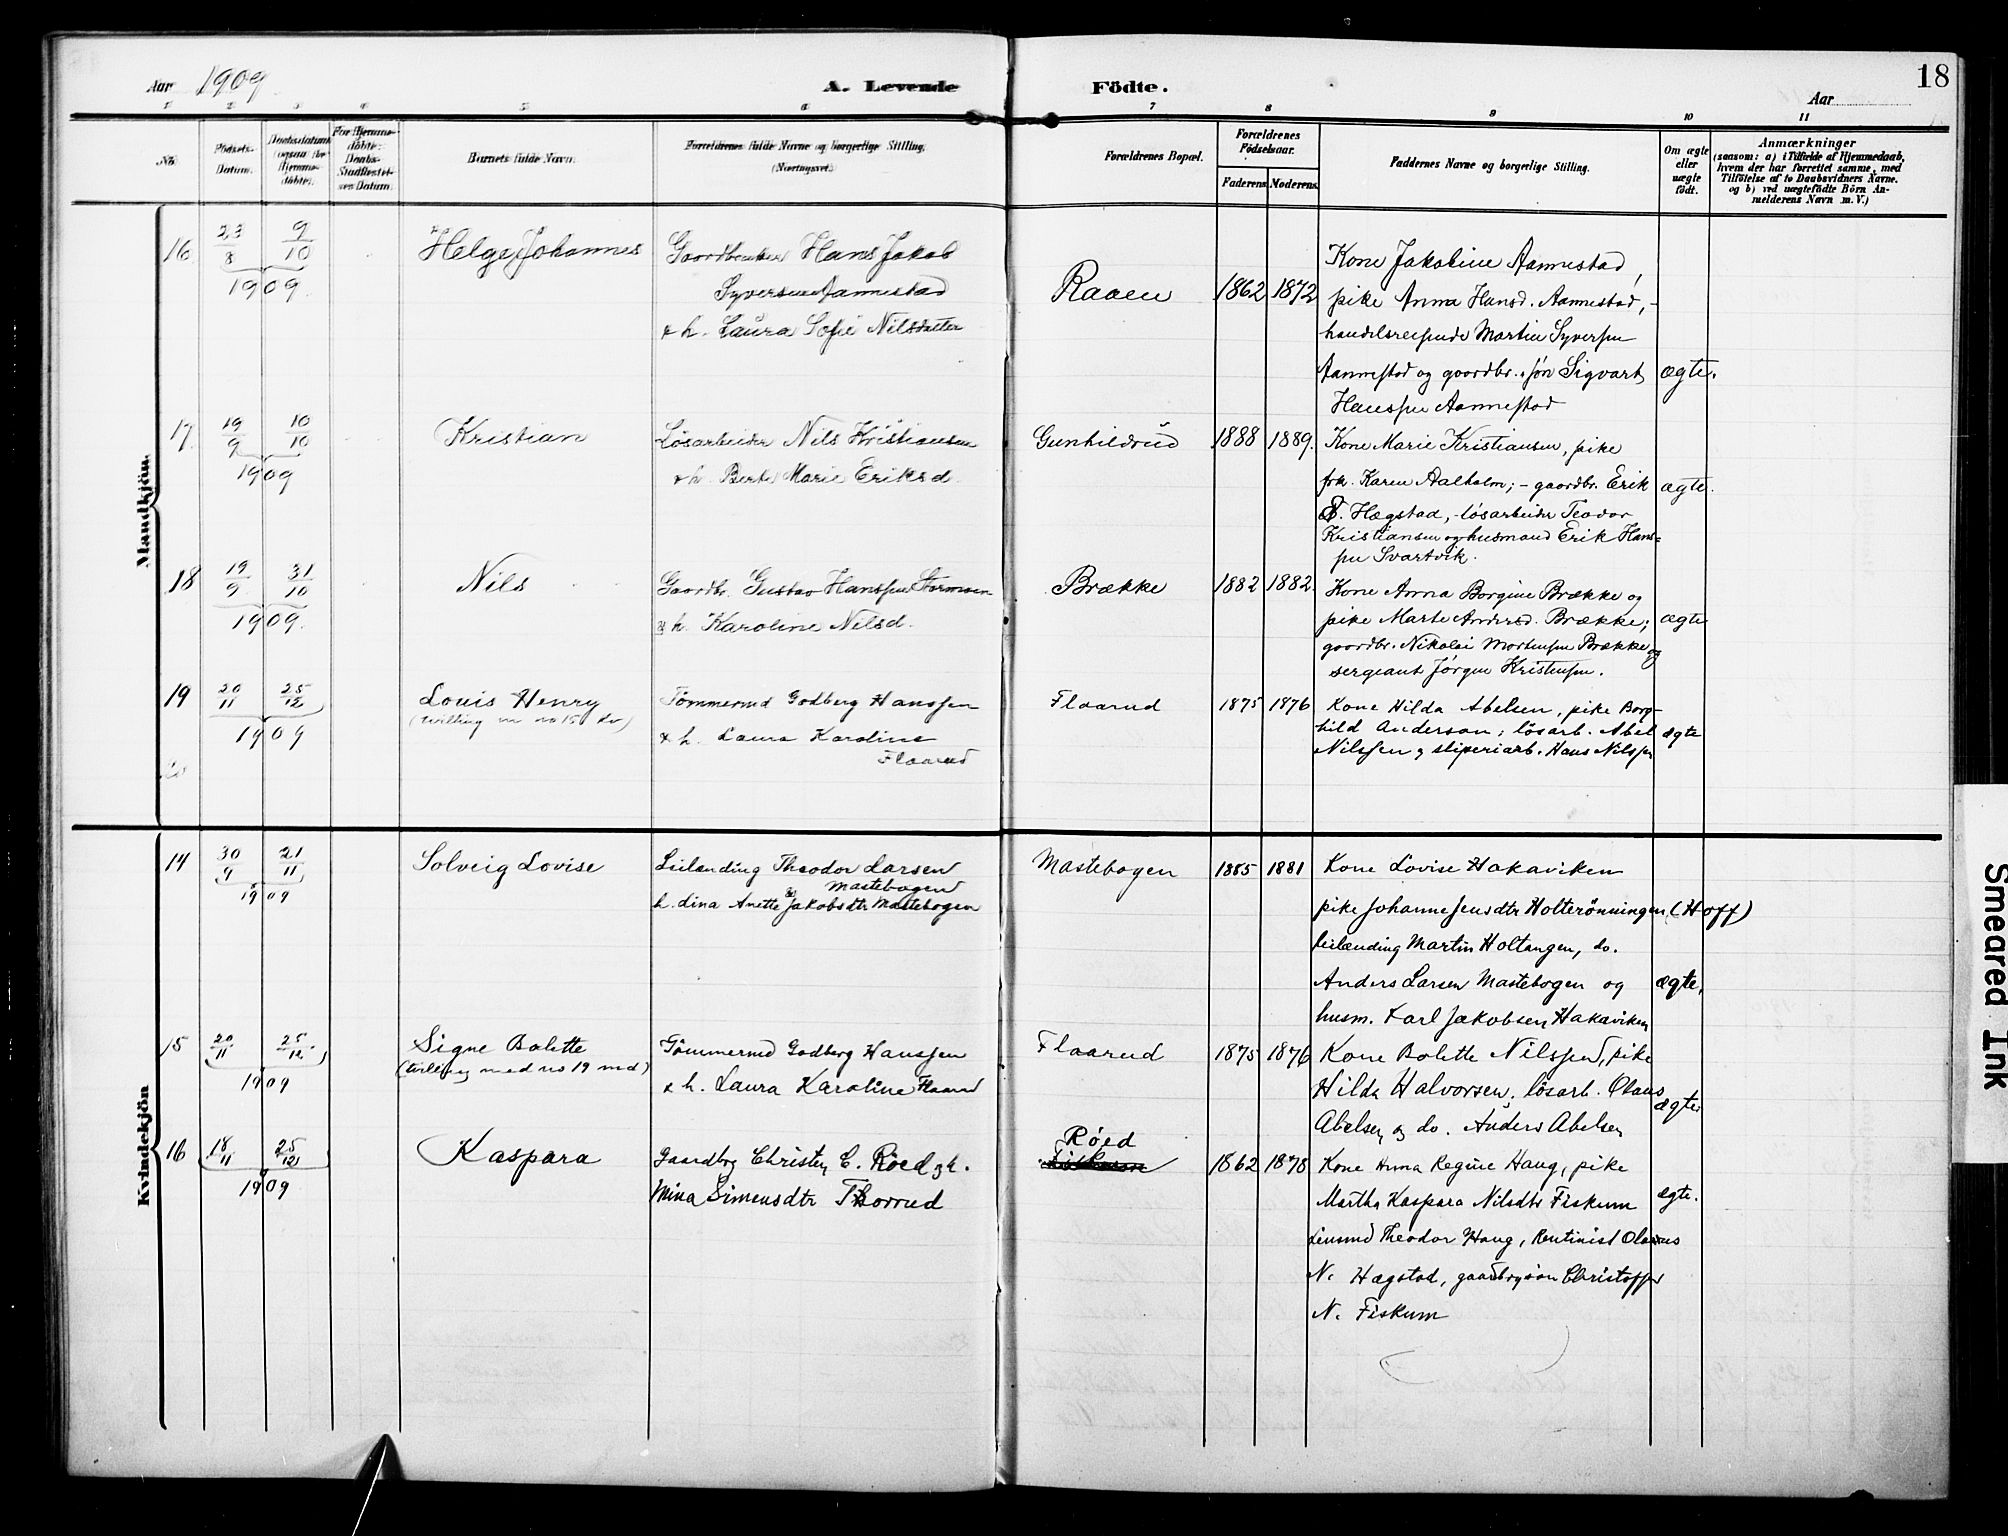 Aar 1909
A. Levende Födte.
18
Aar
1 2 3 4 5 6 7 8 9 10 11
No.
Födsels-
Datum.
Daabsdatum
(ogsaa for
Hjemme-
døbte).
For Hjemme-
döbte:
Daabs-
Stadfæstel-
ses Datum.
Barnets fulde Navn.
Forældrenes fulde Navne og borgerlige Stilling.
(Næringsvei.)
Forældrenes Bopæl.
Forældrenes
Födselsaar.
Faderens. Moderens.
Faddernes Navne og borgerlige Stilling.
Om ægte
eller
uægte
födt.
Anmærkninger
(saasom: a) i Tilfælde af Hjemmedaab,
hvem der har forrettet samme, med
Tilföielse af to Daabsvidners Navne.
og b) ved uægtefödte Börn An-
melderens Navn m. V.)
Mandkjön.
16 23/8 9/10 1909
Helge Johannes
Gaardbruker Hans Jakob
Syversen Aannestad
& h. Laura Sofie Nilsdatter
Raaen 1862 1872
Kone Jakobine Aannestad,
pike Anna Hansd. Aannestad, -
handelsreisende Martin Syversen
Aannestad og gaardbr.søn Sigvart
Hanssen Aannestad
ægte.
17. 19/9 10/10 1909
Kristian
Løsarbeider Nils Kristiansen
& h. Berte Marie Eriksd.
Gunhildrud 1888 1889.
Kone Marie Kristiansen, pike
frk. Karen Aalholm; - gaardbr. Erik
Hægstad, - løsarbeider Teodor
Kristiansen og husmand Erik Hans-
sen Svartvik.
ægte.
18 19/9 31/10 1909.
Nils
Gaardbr. Gustav Hanssen Stormoen
& h. Karoline Nilsd.
Brække 1882 1882.
Kone Anna Borgine Brække og
pike Marte Andersd. Brække;
gaardbr. Nikolai Mortensen Brække og
sergeant Jørgen Kristensen.
ægte
19 20/11 25/12 1909
Louis Henry
(tvilling m no 15 kv)
Tømmermd Godberg Hanssen
& h. Laura Karoline
Flaarud
Flaarud 1875 1876
Kone Hilda Abelsen, pike Borg-
hild Anderson; løsarb. Abel
Nilssen og sliperiarb. Hans Nilssen
ægte
20
Kvindekjön
14 30/9 21/11 1909
Solveig Lovise
Leilænding Theodor Larsen
Mastebogen &
h. Lina Anette Jakobsdtr Mastebogen
Mastebogen 1885 1881
Kone Lovise Hakaviken
pike Johanne Jensdtr Holterönningen (Hoff)
leilænding Martin Holtangen, do.
Anders Larsen Mastebogen og
husm. Karl Jakobsen Hakaviken
ægte,
15 20/11 25/12 1909
Signe Bolette
(tvilling med no 19 md)
Tömmermd Godberg Hanssen
& h. Laura Karoline Flaarud
Flaarud 1875 1876
Kone Bolette Nilssen, pike
Hilda Halvorsen, løsarb. Olaus
Abelsen og do. Anders Abelsen
ægte
16 18/11 25/12 1909
Kaspara
Gaardbrg Christen C. Röed og h.
Mina Simensdtr Thorrud
Röed
1862 1878
Kone Anna Regine Haug, pike
Martha Kaspara Nilsdtr Fiskum
Lensmd Theodor Haug, Rentinist Olaves
N. Hægstad, gaardbrgsøn Christoffer
N. Fiskum
ægte.
Smeared Ink